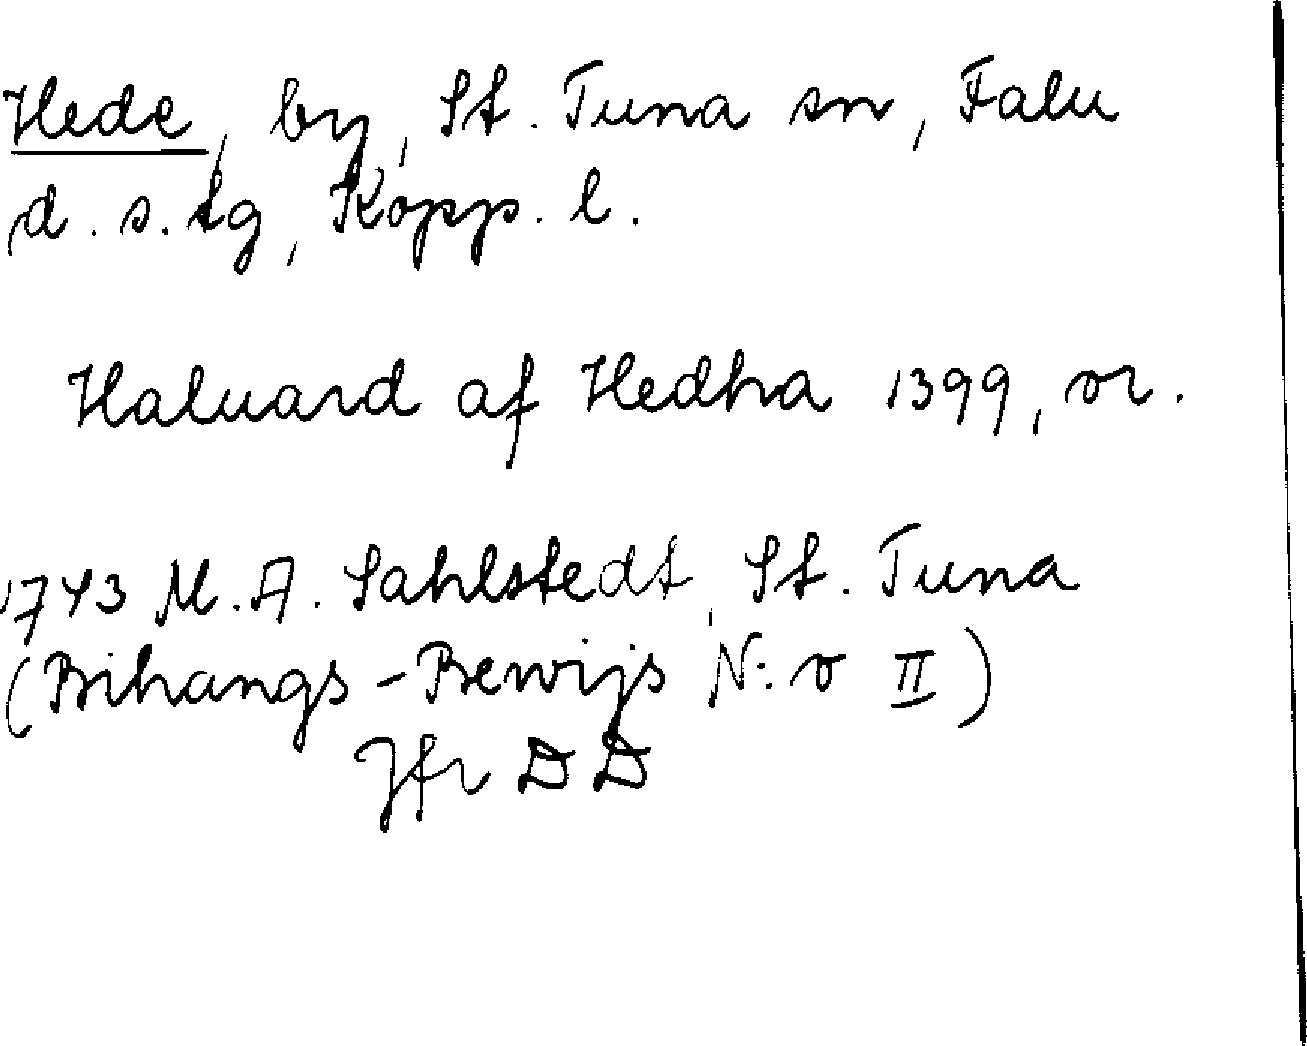 Hede, by, St. Tuna sn, Falu
d. s. tg, Kopp. l.
Haluard af Hedha 1399, or.
1743 M. A. Sahlstedt, St. Tuna
(Bihangs-Bewijs N:o II)
Jfr DD